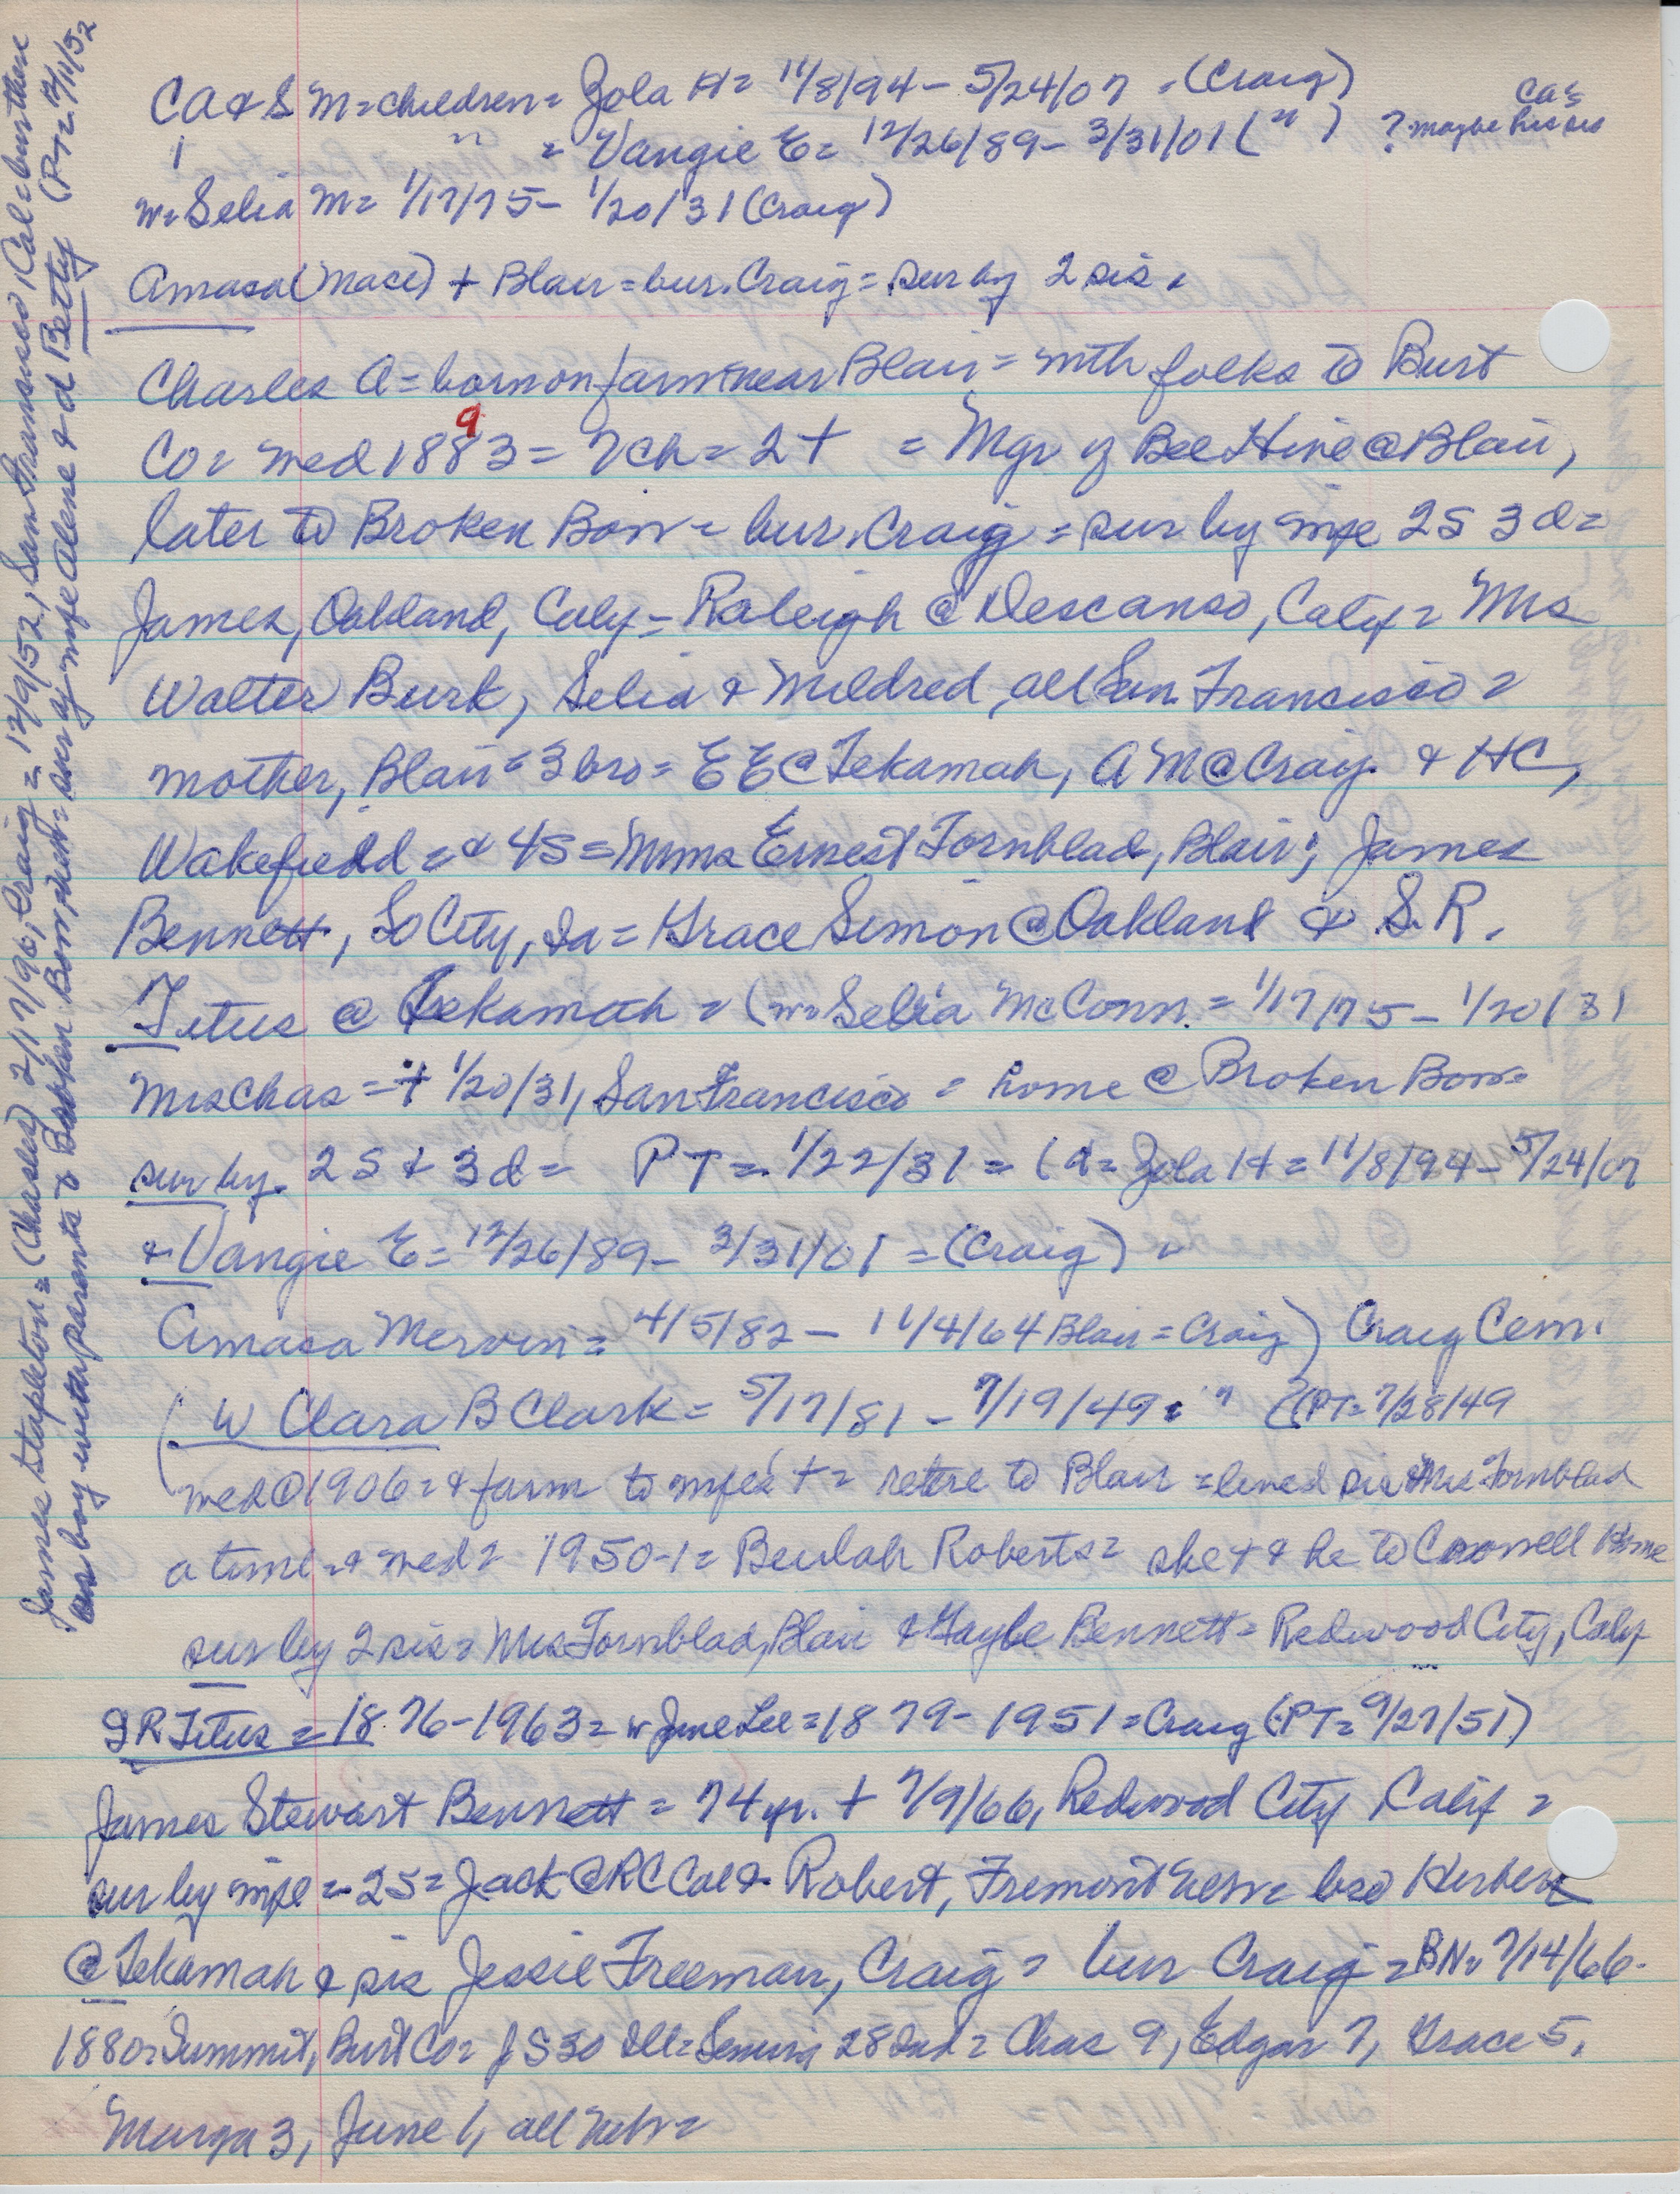 CA & S M = children = Zola H = 11/8/94 - 5/24/07 = (Craig)
" = Vangie E = 12/26/89 - 3/31/01 ( " ) ? maybe his sis
CA's
w = Selia M = 1/17/75 - 1/20/31 (Craig)
Amasa (Mace) + Blair = bur. Craig = sur by 2 sis.
Charles A = born on farm near Blair = with folks to Burt
9
Co = med 1883 = 7 ch = 2 + = Mgr of Bee Hive @ Blair,
later to Broken Bow = bur. Craig = sur by wife 2S 3d =
James, Oakland, Caly = Raleigh @ Descanso, Calif = Mrs
Walter Burk, Selia & Mildred, all San Francisco =
mother, Blair = 3 bro = E E @ Tekamah, A M @ Craig & HC,
Wakefield = & 4S = Mmes Ernest Fornblad, Blair; James
Bennett, So City, Ia = Grace Simon @ Oakland & S. R.
Titus @ Tekamah = (w = Selia McConn. = 1/17/75 - 1/20/31
Mrs Chas = + 1/20/31, San Francisco = home @ Broken Bow =
sur by 2 S & 3 d = PT = 1/22/31 = (d = Zola H = 11/8/94 - 5/24/07
& Vangie E = 12/26/89 - 3/31/01 = (Craig)
Amasa Mervin = 4/5/82 - 11/4/64 Blair = Craig) Craig Cem.
(W Clara B Clark = 5/17/81 - 7/19/49 = " (PT = 7/28/49
med @ 1906 = & farm to wife's + = retire to Blair = lived sis Mrs Fornblad
a time & med = 1950-1 = Beulah Roberts = she + & he to Crowell Home
sur by 2 sis = Mrs Fornblad, Blair & Maybe Bennett = Redwood City, Caly
S R Titus = 1876-1963 = w June Lee = 1879-1951 = Craig (PT = 9/27/51)
James Stewart Bennett = 74 yr. + 7/9/66, Redwood City Calif =
sur by wife = 2S = Jack @ RC Cal & Robert, Fremont Neb = bro Herbert
@ Tekamah & sis Jessie Freeman, Craig = bur Craig = BN = 7/14/66.
1880 = Summit, Burt Co = J S 30 Ill = 28 Ind = Chas 9, Edgar 7, Grace 5,
3, June 1, all Neb =
James Stapleton = (Charles) 2/17/96, Craig = 12/9/52, San Francisco, Cal = bur there
as boy with parents to Broken Bow, Neb = sur by wife Alene & d Betty (PT = 12/11/52